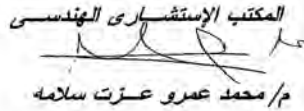 المكتب الإستشارى الهندسى
م/ محمد عمرو عزت سلامه